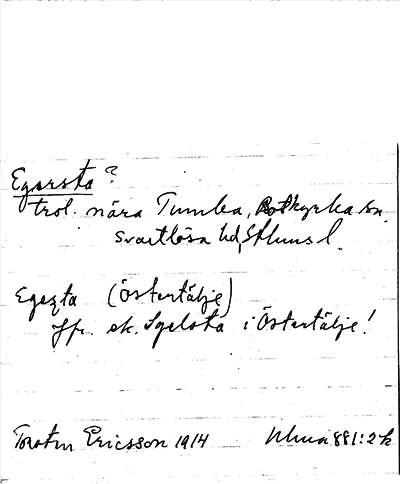 Egarsta ?
trol. nära Tumba, Botkyrka sn.
Svartlösa hd, Sthlms l.
Egesta (Östertälje)
Jfr. ek. Igelsta i Östertälje!
Torsten Ericsson 1914 881:2